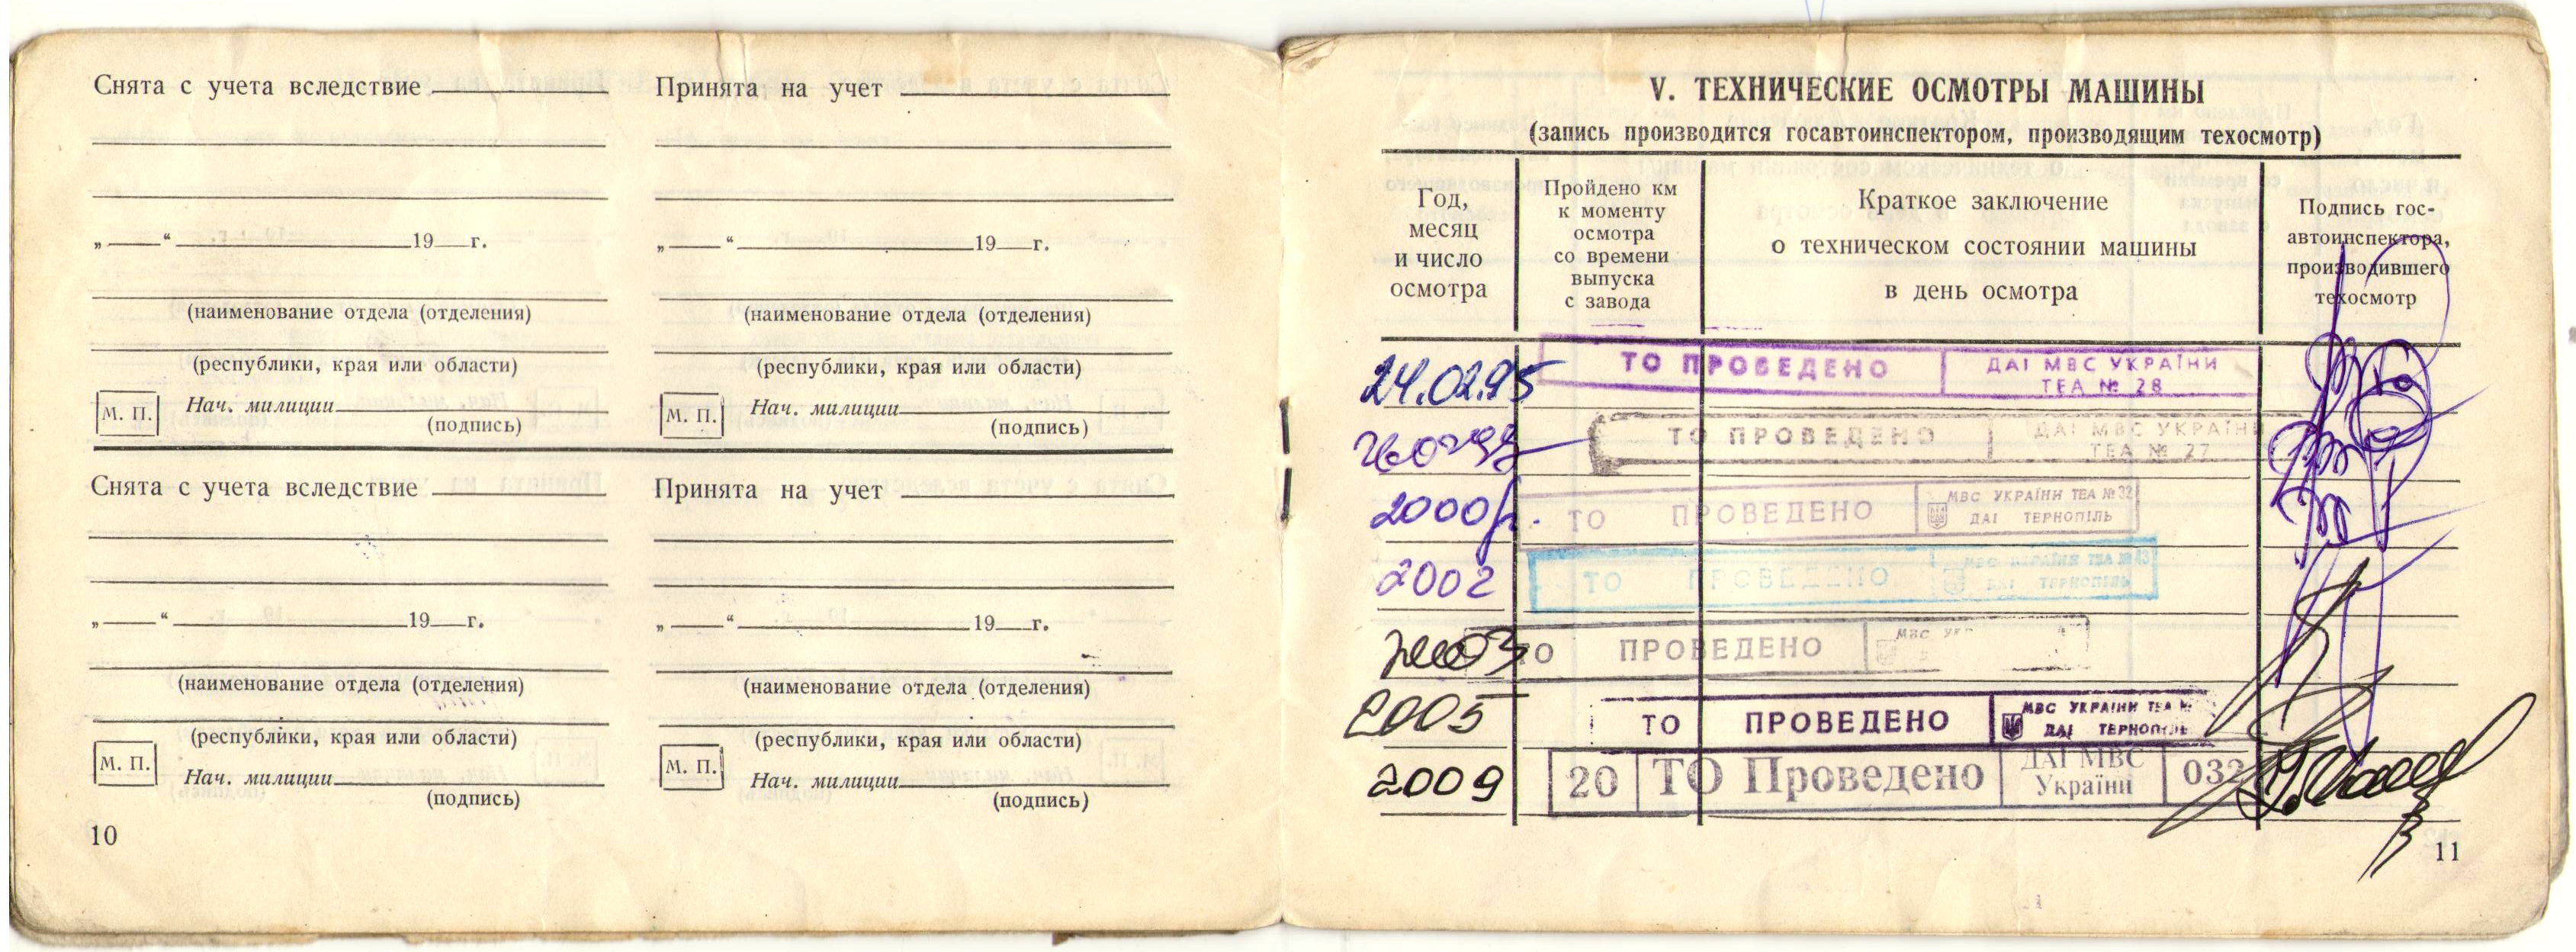 Снята с учета вследствие
„ “ 19 г.
(наименование отдела (отделения)
(республики, края или области)
М. П. Нач. милиции
(подпись)
Снята с учета вследствие
„ “ 19 г.
(наименование отдела (отделения)
(республики, края или области)
М. П. Нач. милиции
(подпись)
10
Принята на учет
„ “ 19 г.
(наименование отдела (отделения)
(республики, края или области)
М. П. Нач. милиции
(подпись)
Принята на учет
„ “ 19 г.
(наименование отдела (отделения)
(республики, края или области)
М. П. Нач. милиции
(подпись)
V. ТЕХНИЧЕСКИЕ ОСМОТРЫ МАШИНЫ
(запись производится госавтоинспектором, производящим техосмотр)
Год,
месяц
и число
осмотра
Пройдено км
к моменту
осмотра
со времени
выпуска
с завода
Краткое заключение
о техническом состоянии машины
в день осмотра
Подпись гос-
автоинспектора,
производившего
техосмотр
24.02.95 ТО ПРОВЕДЕНО ДАІ МВС УКРАЇНИ
ТЕА № 28
ТО ПРОВЕДЕНО ДАІ МВС УКРАЇНИ
ТЕА № 27
2000р. ТО ПРОВЕДЕНО МВС УКРАЇНИ ТЕА № 32
ДАІ ТЕРНОПІЛЬ
2002 ТО ПРОВЕДЕНО МВС УКРАЇНИ ТЕА №
ДАІ ТЕРНОПІЛЬ
2003 ТО ПРОВЕДЕНО МВС
2005 ТО ПРОВЕДЕНО МВС УКРАЇНИ ТЕА №
ДАІ ТЕРНОПІЛЬ
2009 20 ТО Проведено ДАІ МВС
України 032
11